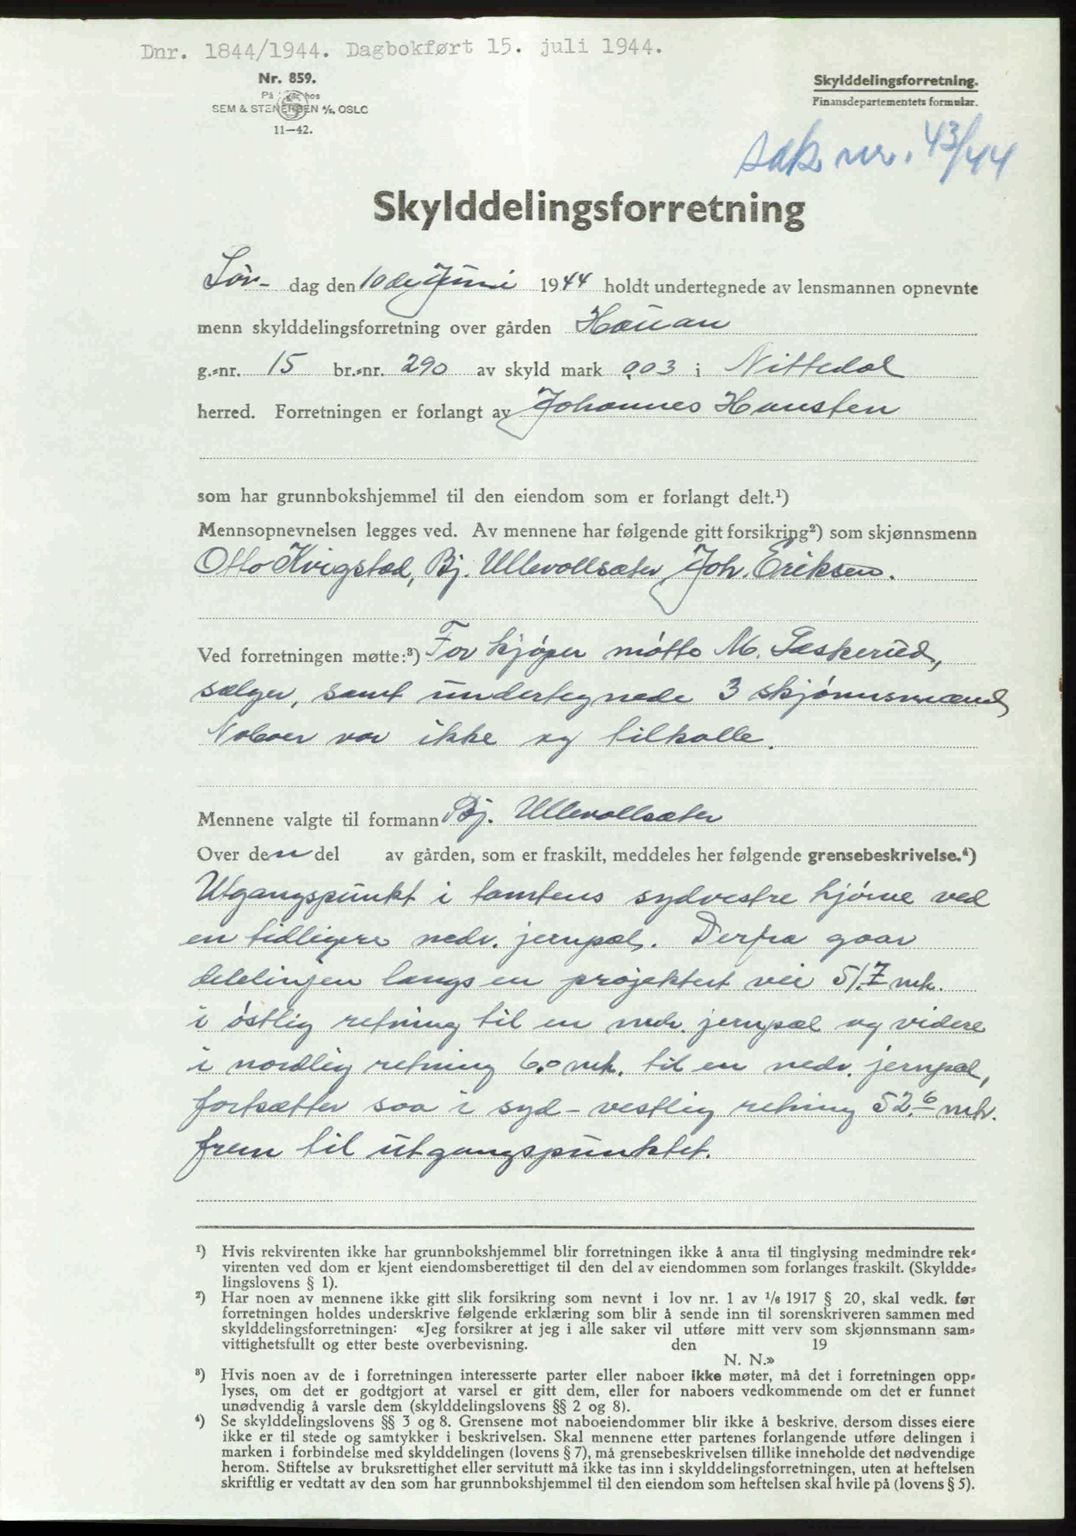 Dnr. 1844/1944. Dagbokført 15. juli 1944.
Nr. 859.
På hos
SEM & STENERSEN A/S, OSLO
11—42.
Skylddelingsforretning.
Finansdepartementets formular.
sak nr. 43/44
Skylddelingsforretning
Lør- dag den 10de Juni 1944 holdt undertegnede av lensmannen opnevnte
menn skylddelingsforretning over gården Hauan
g.-nr. 15 br.-nr. 290 av skyld mark 0,03 i Nittedal
herred. Forretningen er forlangt av Johannes Hansten
som har grunnbokshjemmel til den eiendom som er forlangt delt.¹)
Mennsopnevnelsen legges ved. Av mennene har følgende gitt forsikring²) som skjønnsmenn
Otto Kvigstad, Bj. Ullevollsæter Joh. Eriksen.
Ved forretningen møtte:³) For kjøper møtte M. Laskerud,
sælger, samt undertegnede 3 skjønnsmænd
Naboer var ikke og tilkalle.
Mennene valgte til formann Bj. Ullevollsæter
Over den del av gården, som er fraskilt, meddeles her følgende grensebeskrivelse.⁴)
Utgangspunkt i tomtens sydvestre hjørne ved
en tidligere nedr. jernpæl. Derfra gaar
delelinjen langs en projektert vei 51.7 mtr.
i østlig retning til en nedr. jernpæl og videre
i nordlig retning 6.0 mtr. til en nedr. jernpæl,
fortsætter saa i syd-vestlig retning 52.6 mtr.
frem til utgangspunktet.
¹) Hvis rekvirenten ikke har grunnbokshjemmel blir forretningen ikke å anta til tinglysing medmindre rek-
virenten ved dom er kjent eiendomsberettiget til den del av eiendommen som forlanges fraskilt. (Skyldde-
lingslovens § 1).
²) Har noen av mennene ikke gitt slik forsikring som nevnt i lov nr. 1 av 1/6 1917 § 20, skal vedk. før
forretningen holdes underskrive følgende erklæring som blir å sende inn til sorenskriveren sammen med
skylddelingsforretningen: «Jeg forsikrer at jeg i alle saker vil utføre mitt verv som skjønnsmann sam-
vittighetsfullt og etter beste overbevisning. den 19
N. N.»
³) Hvis noen av de i forretningen interesserte parter eller naboer ikke møter, må det i forretningen opp-
lyses, om det er godtgjort at varsel er gitt dem, eller for naboers vedkommende om det er funnet
unødvendig å varsle dem (skylddelingslovens §§ 2 og 8).
⁴) Se skylddelingslovens §§ 3 og 8. Grensene mot naboeiendommer blir ikke å beskrive, dersom disses eiere
ikke er til stede og samtykker i beskrivelsen. Skal mennene etter partenes forlangende utføre delingen i
marken i forbindelse med skylddelingen (lovens § 7), må grensebeskrivelsen tillike inneholde det nødvendige
herom. Stiftelse av bruksrettighet eller servitutt må ikke tas inn i skylddelingsforretningen, uten at heftelsen
skriftlig er vedtatt av den som har grunnbokshjemmel til den eiendom som heftelsen skal hvile på (lovens § 5).